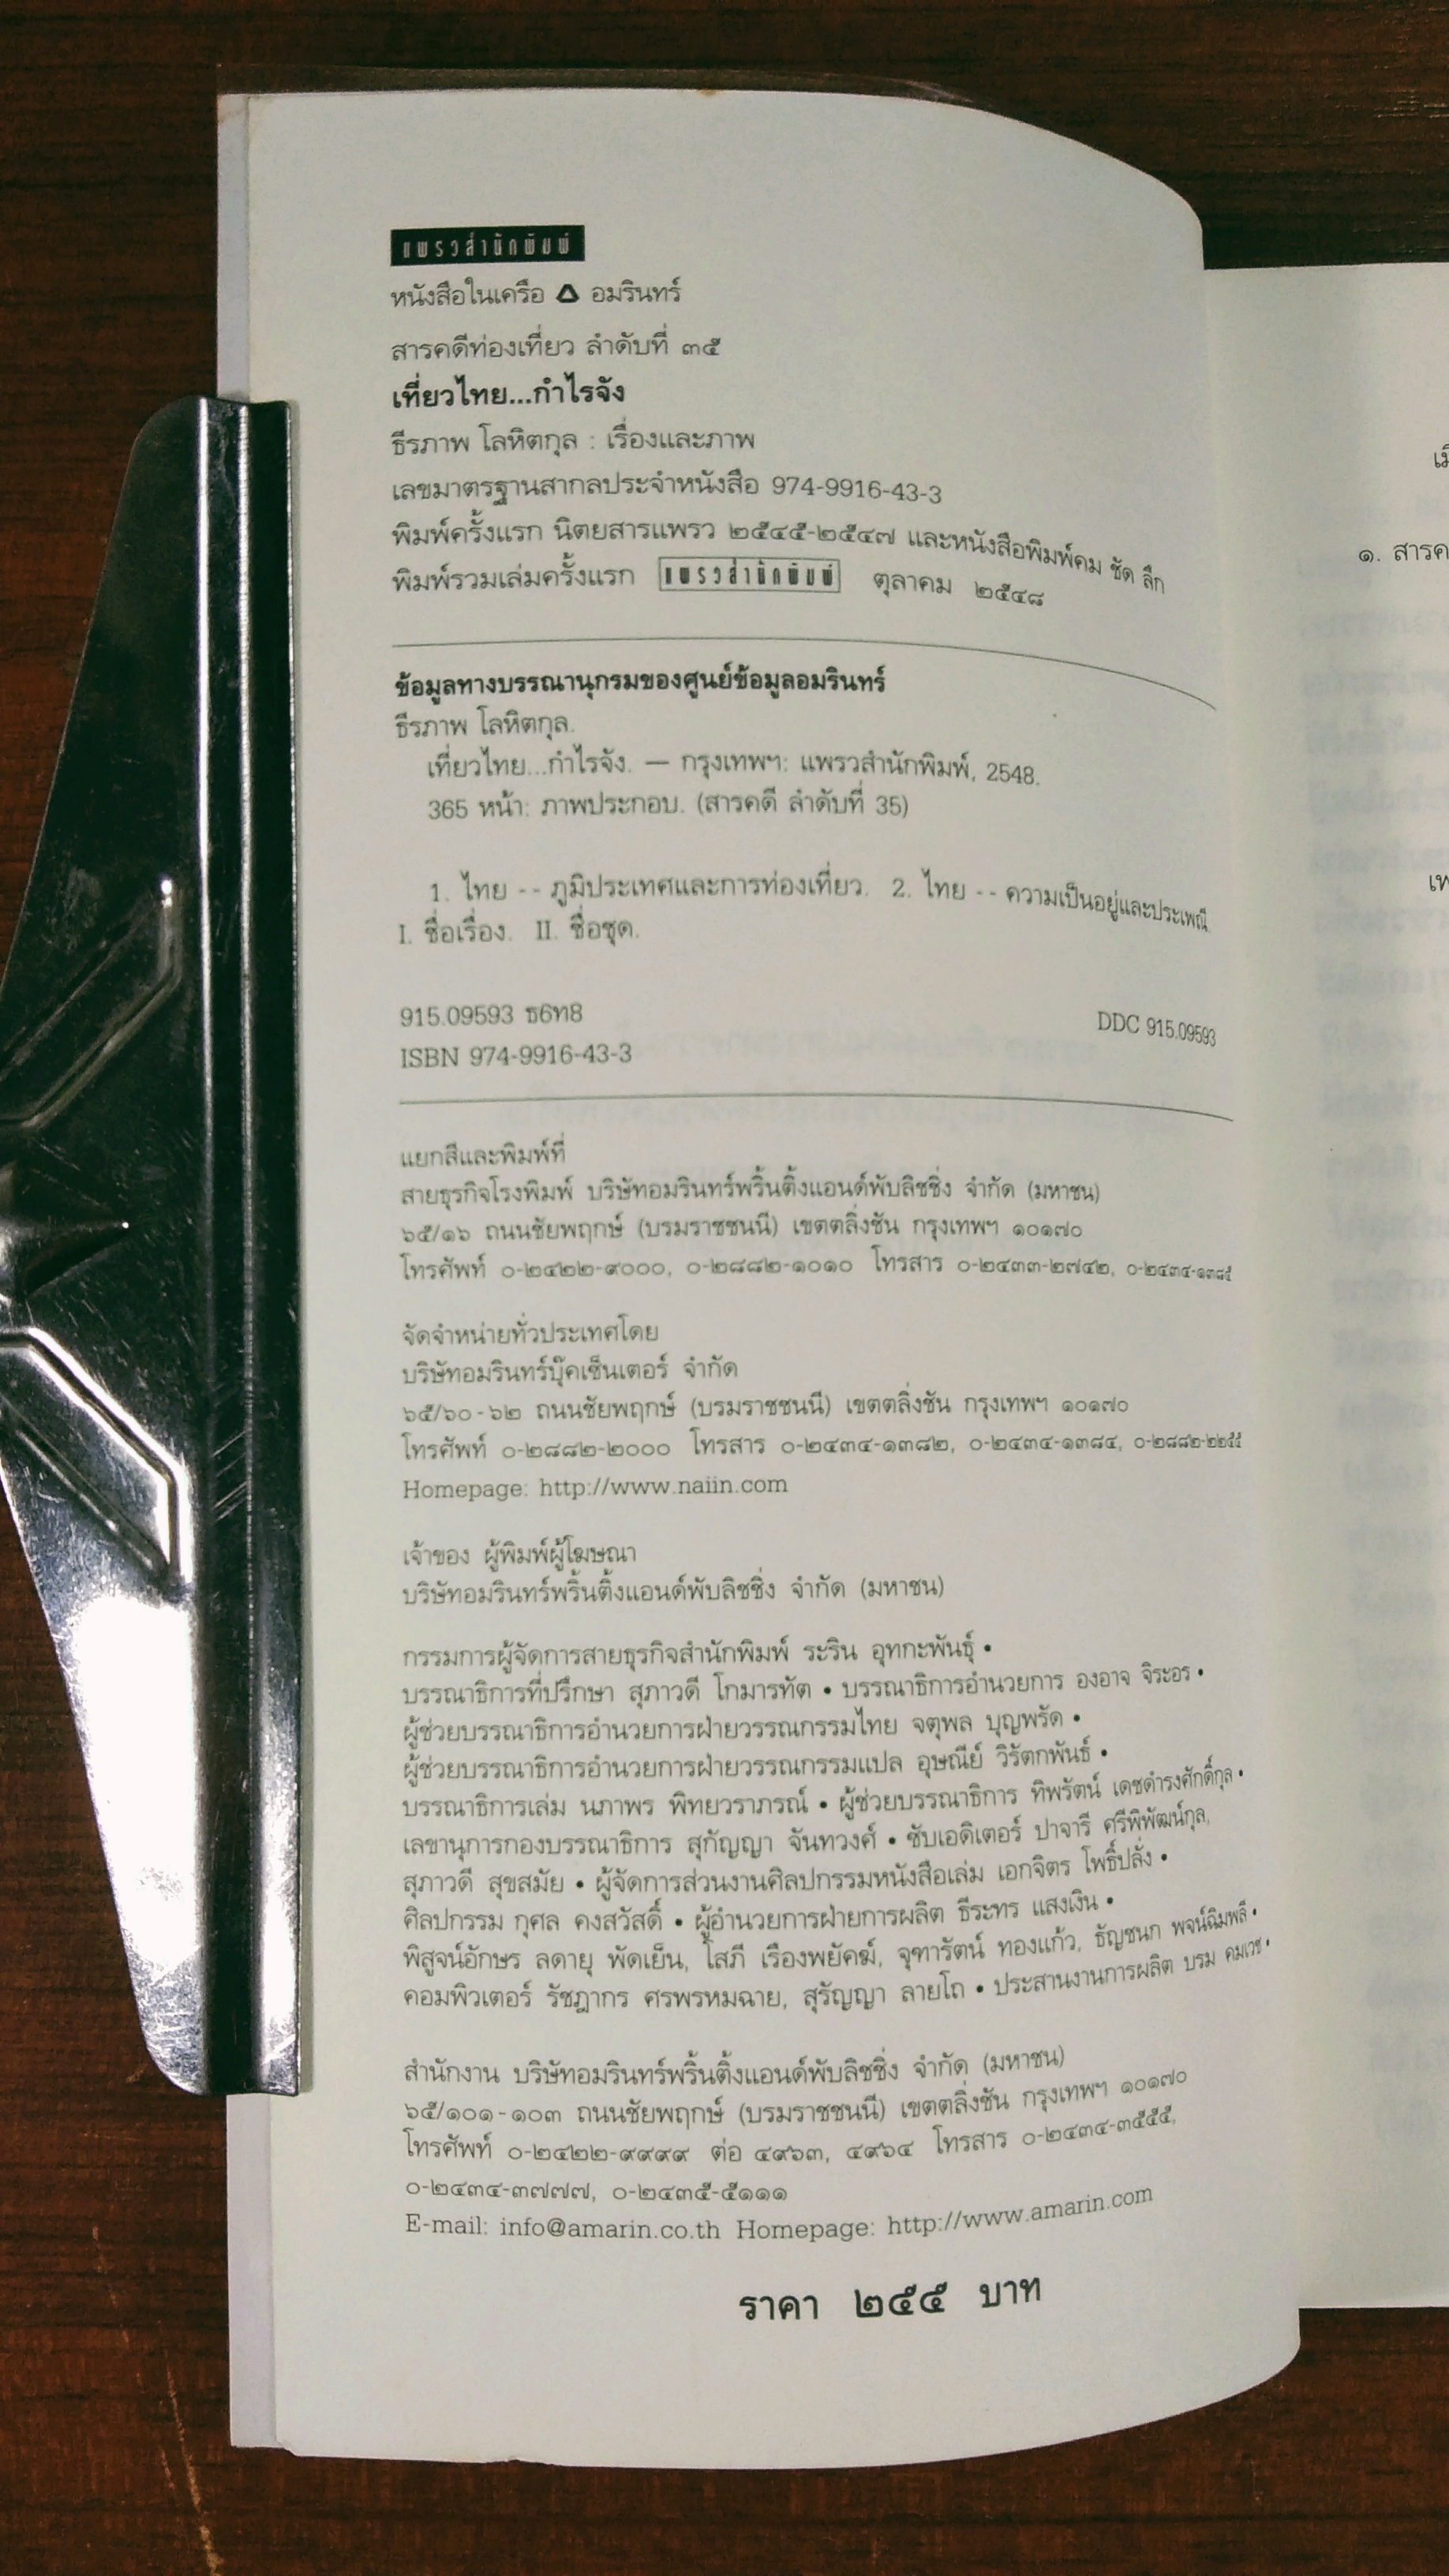 แพรวสำนักพิมพ์
หนังสือในเครือ อมรินทร์
สารคดีท่องเที่ยว ลำดับที่ ๓๕
เที่ยวไทย...กำไรจัง
ธีรภาพ โลหิตกุล : เรื่องและภาพ
เลขมาตรฐานสากลประจำหนังสือ 974-9916-43-3
พิมพ์ครั้งแรก นิตยสารแพรว ๒๕๔๕-๒๕๔๗ และหนังสือพิมพ์คม ชัด ลึก
พิมพ์รวมเล่มครั้งแรก แพรวสำนักพิมพ์ ตุลาคม ๒๕๔๘
ข้อมูลทางบรรณานุกรมของศูนย์ข้อมูลอมรินทร์
ธีรภาพ โลหิตกุล.
เที่ยวไทย...กำไรจัง. — กรุงเทพฯ: แพรวสำนักพิมพ์, 2548.
365 หน้า: ภาพประกอบ. (สารคดี ลำดับที่ 35)
1. ไทย -- ภูมิประเทศและการท่องเที่ยว. 2. ไทย -- ความเป็นอยู่และประเพณี.
I. ชื่อเรื่อง. II. ชื่อชุด.
915.09593 ธ6ท8
DDC 915.09593
ISBN 974-9916-43-3
แยกสีและพิมพ์ที่
สายธุรกิจโรงพิมพ์ บริษัทอมรินทร์พริ้นติ้งแอนด์พับลิชชิ่ง จำกัด (มหาชน)
๖๕/๑๖ ถนนชัยพฤกษ์ (บรมราชชนนี) เขตตลิ่งชัน กรุงเทพฯ ๑๐๑๗๐
โทรศัพท์ ๐-๒๔๒๒-๙๐๐๐, ๐-๒๘๘๒-๑๐๑๐ โทรสาร ๐-๒๔๓๓-๒๗๔๒, ๐-๒๔๓๔-๑๓๘๕
จัดจำหน่ายทั่วประเทศโดย
บริษัทอมรินทร์บุ๊คเซ็นเตอร์ จำกัด
๖๕/๖๐-๖๒ ถนนชัยพฤกษ์ (บรมราชชนนี) เขตตลิ่งชัน กรุงเทพฯ ๑๐๑๗๐
โทรศัพท์ ๐-๒๘๘๒-๒๐๐๐ โทรสาร ๐-๒๔๓๔-๑๓๘๒, ๐-๒๔๓๔-๑๓๘๔, ๐-๒๘๘๒-๒๒๕๕
Homepage: http://www.naiin.com
เจ้าของ ผู้พิมพ์ผู้โฆษณา
บริษัทอมรินทร์พริ้นติ้งแอนด์พับลิชชิ่ง จำกัด (มหาชน)
กรรมการผู้จัดการสายธุรกิจสำนักพิมพ์ ระริน อุทกะพันธุ์ •
บรรณาธิการที่ปรึกษา สุภาวดี โกมารทัต • บรรณาธิการอำนวยการ องอาจ จิระอร •
ผู้ช่วยบรรณาธิการอำนวยการฝ่ายวรรณกรรมไทย จตุพล บุญพรัด •
ผู้ช่วยบรรณาธิการอำนวยการฝ่ายวรรณกรรมแปล อุษณีย์ วิรัตกพันธ์ •
บรรณาธิการเล่ม นภาพร พิทยวราภรณ์ • ผู้ช่วยบรรณาธิการ ทิพรัตน์ เดชดำรงศักดิ์กุล •
เลขานุการกองบรรณาธิการ สุกัญญา จันทวงศ์ • ซับเอดิเตอร์ ปาจารี ศรีพิพัฒน์กุล,
สุภาวดี สุขสมัย • ผู้จัดการส่วนงานศิลปกรรมหนังสือเล่ม เอกจิตร โพธิ์ปลั่ง •
ศิลปกรรม กุศล คงสวัสดิ์ • ผู้อำนวยการฝ่ายการผลิต ธีระทร แสงเงิน •
พิสูจน์อักษร ลดายุ พัดเย็น, โสภี เรืองพยัคฆ์, จุฑารัตน์ ทองแก้ว, ธัญชนก พจน์ฉิมพลี •
คอมพิวเตอร์ รัชฎากร ศรพรหมฉาย, สุรัญญา ลายโถ • ประสานงานการผลิต บรม คมเวช •
สำนักงาน บริษัทอมรินทร์พริ้นติ้งแอนด์พับลิชชิ่ง จำกัด (มหาชน)
๖๕/๑๐๑-๑๐๓ ถนนชัยพฤกษ์ (บรมราชชนนี) เขตตลิ่งชัน กรุงเทพฯ ๑๐๑๗๐
โทรศัพท์ ๐-๒๔๒๒-๙๙๙๙ ต่อ ๔๙๖๓, ๔๙๖๔ โทรสาร ๐-๒๔๓๔-๓๕๕๕,
๐-๒๔๓๔-๓๗๗๗, ๐-๒๔๓๕-๕๑๑๑
E-mail: info@amarin.co.th Homepage: http://www.amarin.com
ราคา ๒๕๕ บาท
๑. สารค